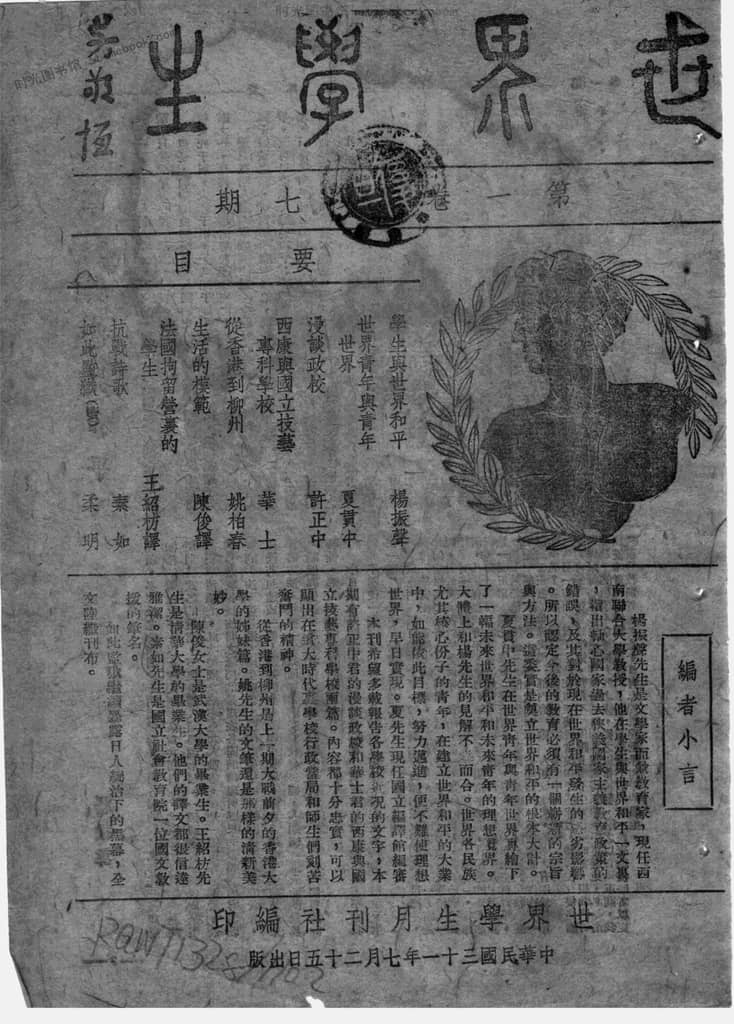 世界學生
吳敬恆
第一卷 七期
要目
學生與世界和平 楊振聲
世界青年與青年世界 夏貫中
漫談政校 許正中
西康與國立技藝專科學校 華士
從香港到柳州 姚柏春
生活的模範 陳俊譯
法國拘留營裏的學生 王紹枋譯
抗戰詩歌 秦如
如此 柔明
編者小言
楊振聲先生是文學家而兼教育家,現任西
南聯合大學教授,他在學生與世界和平一文裏
,指出軸心國家過去狹義國家主義教育政策的
錯誤,及其對於現在世界和平發生的惡劣影響
。所以認定今後的教育必須有一個嶄新的宗旨
與方法。這委實是奠立世界和平的根本大計。
夏貫中先生在世界青年與青年世界裏繪下
了一幅未來世界和平和未來青年的理想世界。
大體上和楊先生的見解不 而合。世界各民族
尤其核心份子的青年,在建立世界和平的大業
中,如能依此目標,努力邁進,便不難使理想
世界,早日實現。夏先生現任國立編譯館編審
本刊希望多載報告各學校近況的文字,本
期有許正中君的漫談政校和華士君的西康與國
立技藝專科學校兩篇。內容都十分忠實,可以
顯出在這大時代裏學校行政當局和師生們刻苦
奮鬥的精神。
從香港到柳州是上一期大戰前夕的香港大
學的姊妹篇。姚先生的文筆還是那樣的清新美
妙。
陳俊女士是武漢大學的畢業生。王紹枋先
生是清華大學的畢業生。他們的譯文都很信達
雅潔。秦如先生是國立社會教育院一位國文教
授的筆名。
如此 繼續暴露日人統治下的黑幕,全
文陸續刊布。
世界學生月刊社編印
中華民國三十一年七月二十五日出版